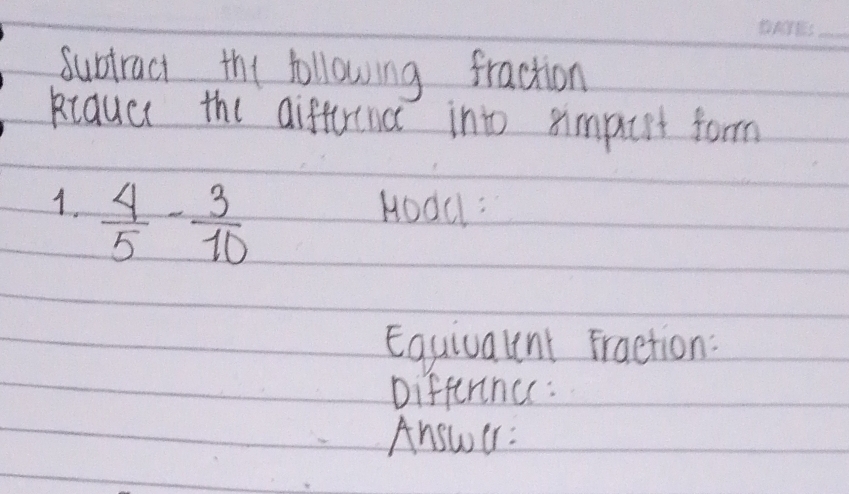 DATE:
Subtract the following fraction
Reduce the difference into simplest form
1. 4/5 - 3/10 Model:
Equivalent Fraction:
Difference:
Answer: